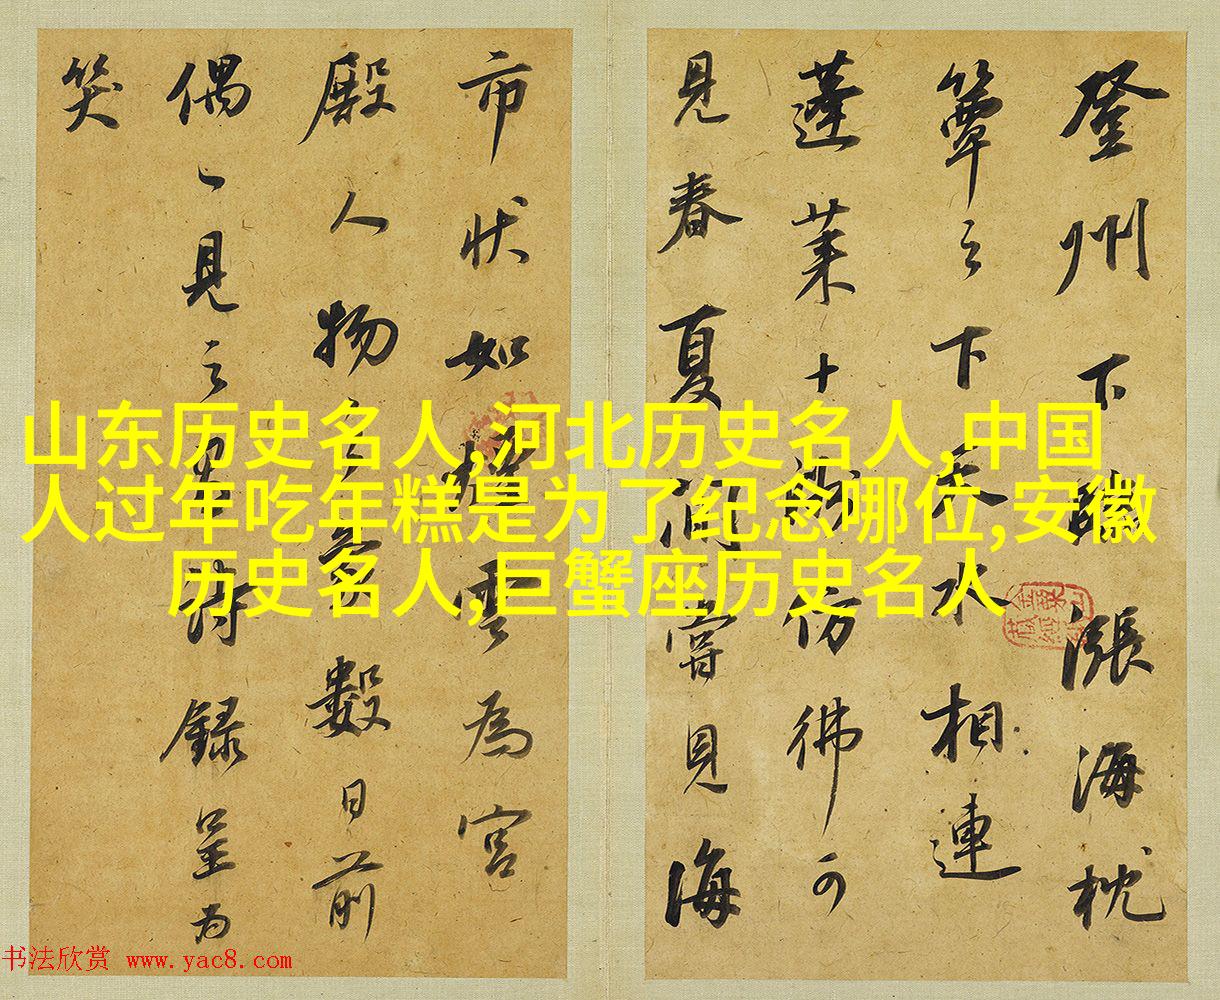 登州下漲海枕
簟之下天水相連
蓬莱十數仿彿可
見春夏間嘗見海
市狀如煙雲為宮
殿人物之數日前
偶一見之詩録呈為
笑
山东历史名人,河北历史名人,中国
人过年吃年糕是为了纪念哪位,安徽
历史名人,巨蟹座历史名人
书法欣赏 www.yac8.com